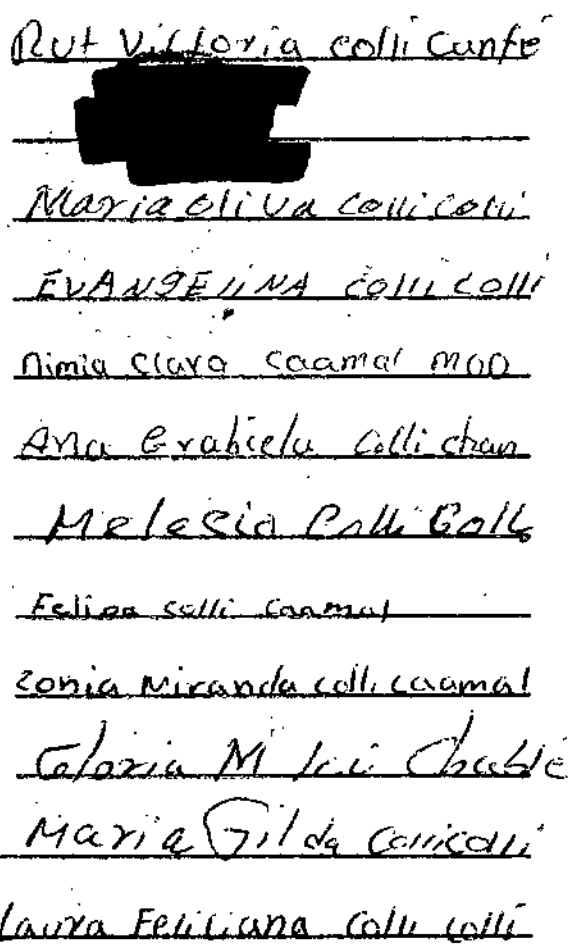 Rut Victoria colli Canté
Maria oliva colli colli
EVANgElINA colli colli
nimia clara caamal moo
Ana Grabiela colli chan
Melesio Colli Colli
Felipa colli caamal
zonia Miranda colli caamal
Gloria M Chablé
Maria Gilda collicolli
laura Feliciana Colli colli